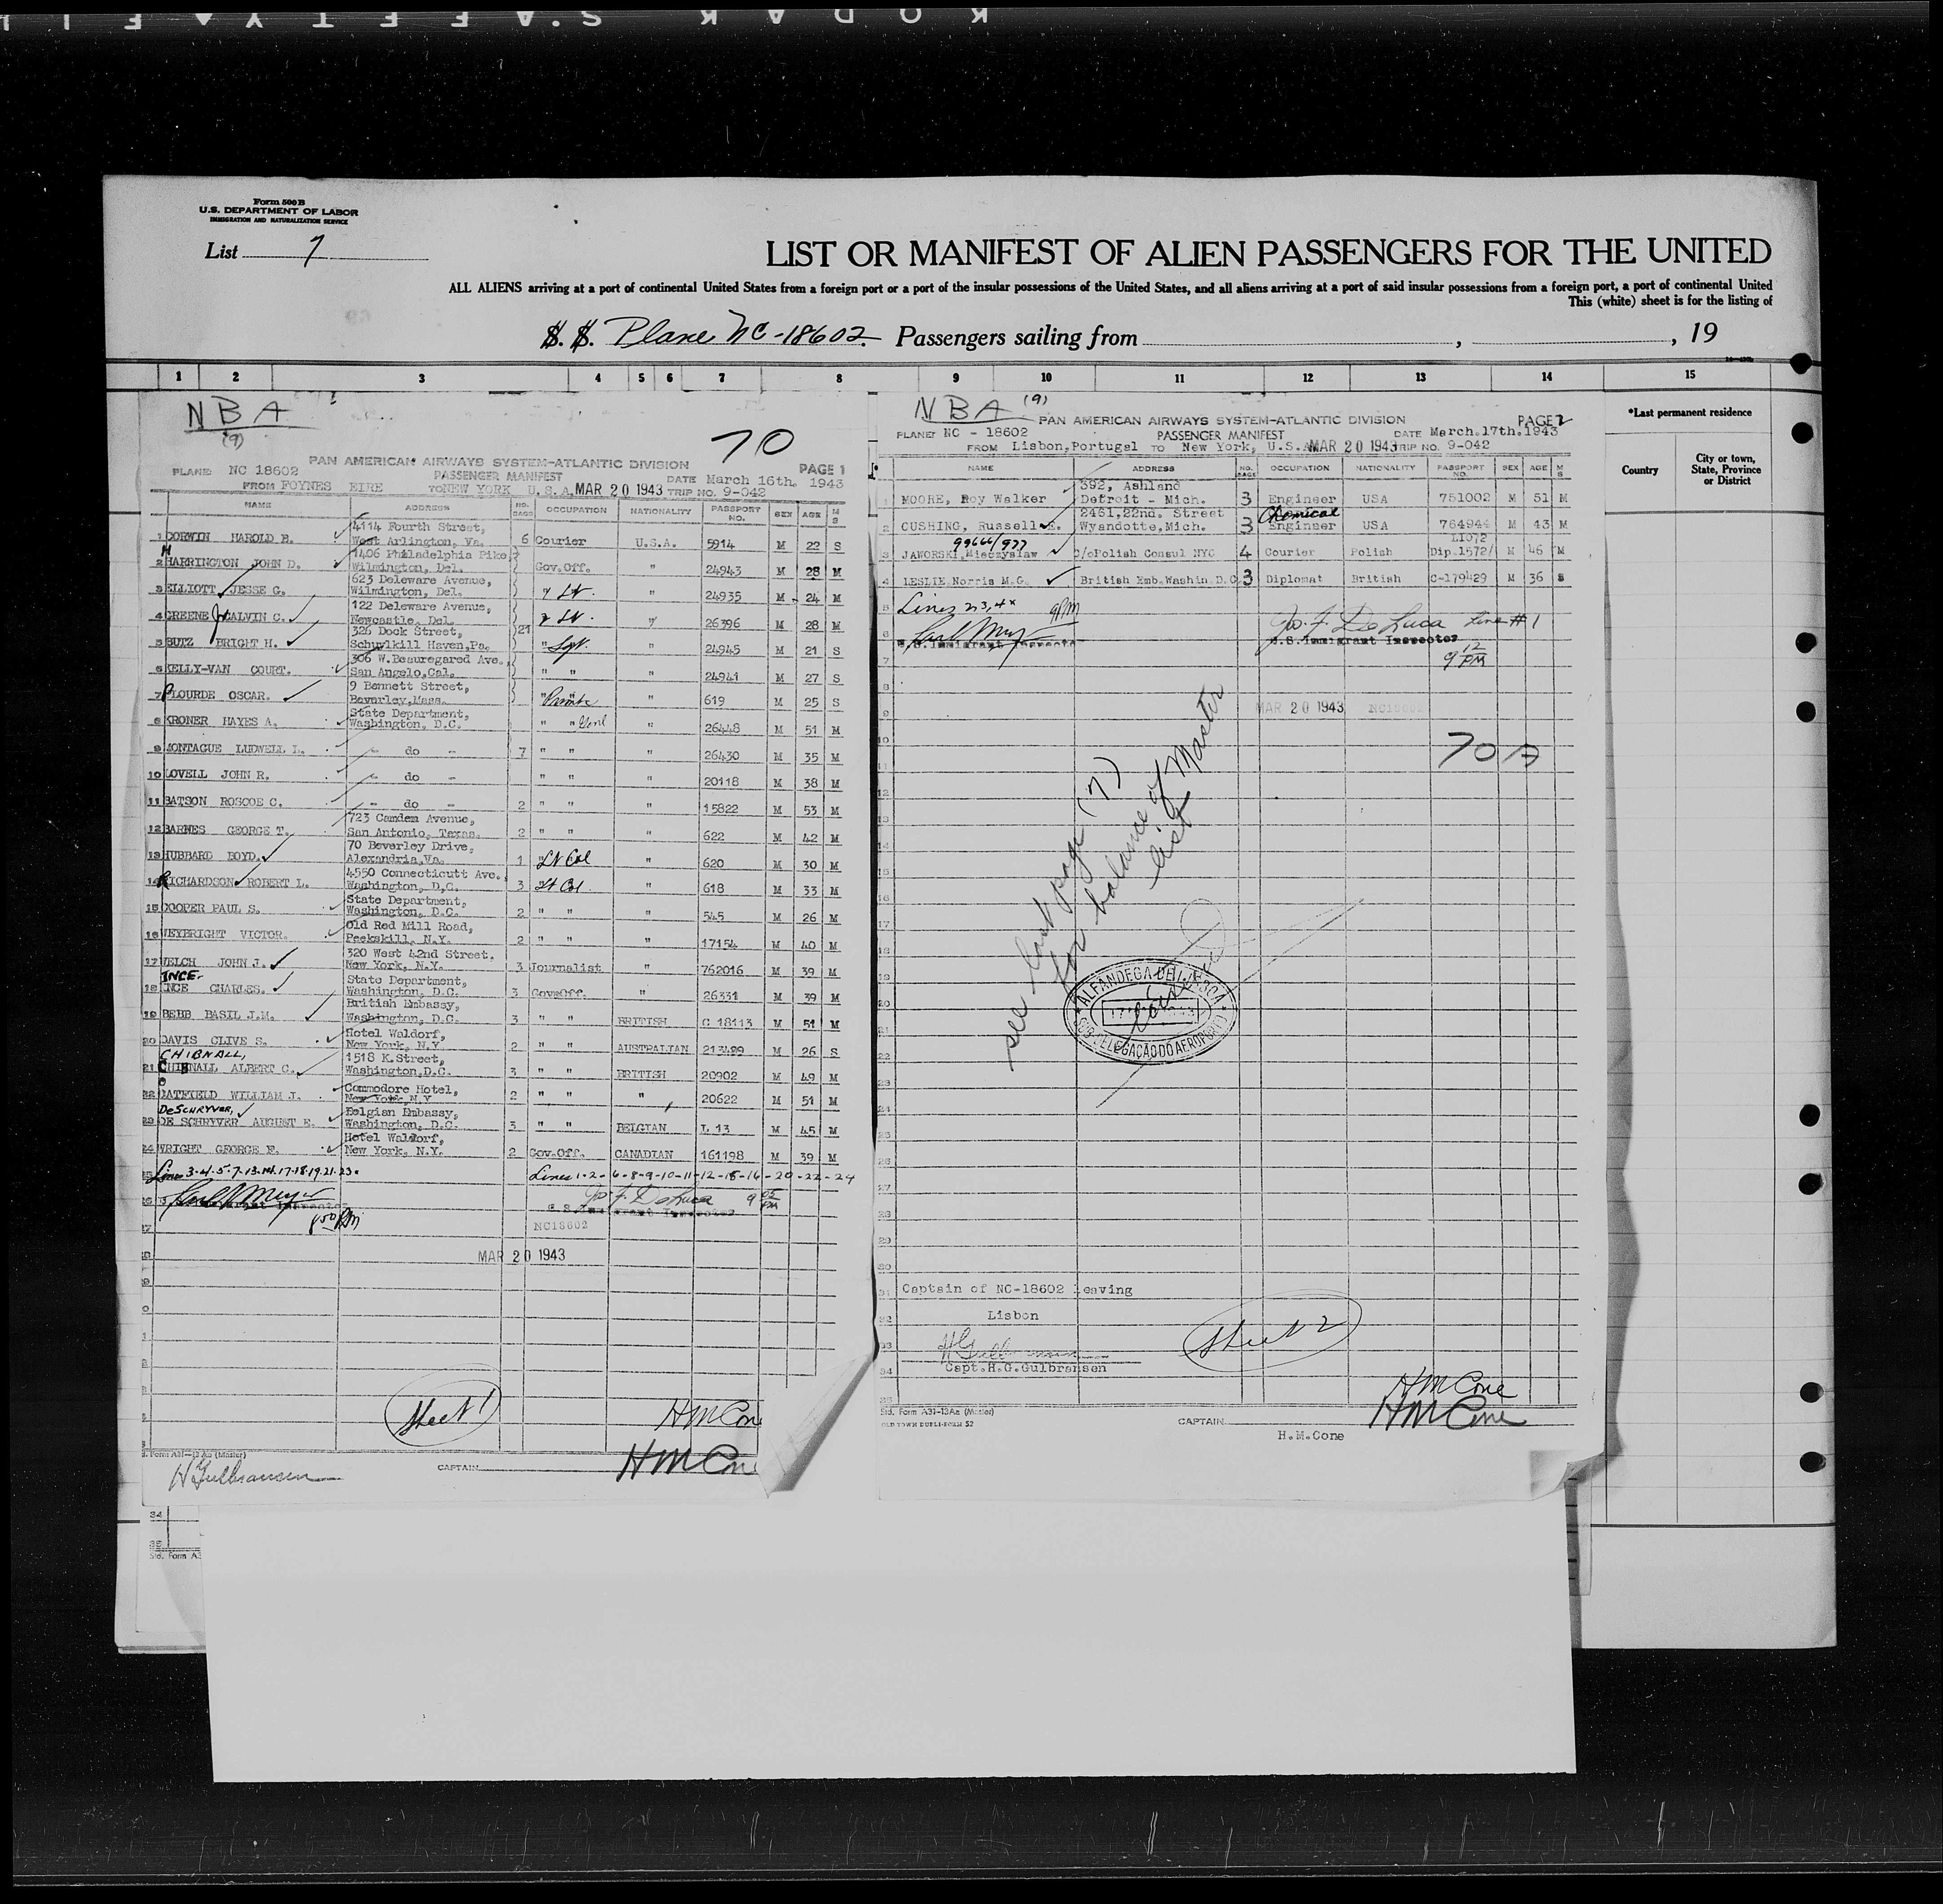 KODAK S.A.F.E.T.Y. F I
Form 500 B
U.S. DEPARTMENT OF LABOR
IMMIGRATION AND NATURALIZATION SERVICE
List 7
LIST OR MANIFEST OF ALIEN PASSENGERS FOR THE UNITED
ALL ALIENS arriving at a port of continental United States from a foreign port or a port of the insular possessions of the United States, and all aliens arriving at a port of said insular possessions from a foreign port, a port of continental United
This (white) sheet is for the listing of
S. S. Plane NC-18602 Passengers sailing from , , 19
1 2 3 4 5 6 7 8 9 10 11 12 13 14 15
*Last permanent residence
Country
City or town, State, Province or District
NBA
(9)
70
PAN AMERICAN AIRWAYS SYSTEM-ATLANTIC DIVISION PAGE 1
PLANE: NC 18602 PASSENGER MANIFEST DATE March 16th. 1943
FROM FOYNES EIRE TO NEW YORK U.S.A. MAR 20 1943 TRIP NO. 9-042
NAME ADDRESS NO. BAGS OCCUPATION NATIONALITY PASSPORT NO. SEX AGE M S
1 CORWIN HAROLD B. 4114 Fourth Street, West Arlington, Va. 6 Courier U.S.A. 5914 M 22 S
2 HARRINGTON JOHN D. 1406 Philadelphia Pike, Wilmington, Del. Gov.Off. " 24943 M 28 M
3 ELLIOTT JESSE G. 623 Deleware Avenue, Wilmington, Del. " Lt. " 24935 M 24 M
4 GREENE CALVIN C. 122 Deleware Avenue, Newcastle, Del. " Lt. " 26396 M 28 M
5 BUTZ BRIGHT H. 326 Dock Street, Schuylkill Haven, Pa. 21 " Sgt. " 24945 M 21 S
6 KELLY-VAN COURT. 306 W.Beauregared Ave., San Angelo,Cal. " " " 24941 M 27 S
7 PLOURDE OSCAR. 9 Bennett Street, Beverley,Mass. " Private " 619 M 25 S
8 KRONER HAYES A. State Department, Washington, D.C. " " Genl " 26448 M 51 M
9 MONTAGUE LUDWELL L. - do - 7 " " 26430 M 35 M
10 LOVELL JOHN R. - do - " " 20118 M 38 M
11 BATSON ROSCOE C. - do - 2 " " 15822 M 53 M
12 BARNES GEORGE T. 723 Camdem Avenue, San Antonio, Texas. 2 " " " 622 M 42 M
13 HUBBARD BOYD. 70 Beverley Drive, Alexandria,Va. 1 " Lt Col " 620 M 30 M
14 RICHARDSON ROBERT L. 4550 Connecticutt Ave., Washington, D.C. 3 " Lt Col. " 618 M 33 M
15 COOPER PAUL S. State Department, Washington, D.C. 2 " " " 545 M 26 M
16 WEYBRIGHT VICTOR. Old Red Mill Road, Peekskill, N.Y. 2 " " " 17154 M 40 M
17 WELCH JOHN J. 320 West 42nd Street. New York, N.Y. 3 Journalist " 762016 M 39 M
INCE-
18 INCE CHARLES. State Department, Washington, D.C. 3 Gov.Off. " 26331 M 39 M
19 BEBB BASIL J.M. British Embassy, Washington, D.C. 3 " " BRITISH C 18113 M 51 M
20 DAVIS CLIVE S. Hotel Waldorf, New York, N.Y 2 " " AUSTRALIAN 213489 M 26 S
CHIBNALL,
21 CHIBNALL ALBERT C. 1518 K.Street, Washington,D.C. 3 " " BRITISH 20902 M 49 M
22 OATFIELD WILLIAM J. Commodore Hotel, New York,N.Y 2 " " " 20622 M 51 M
DeSCHRYVER,
23 DE SCHRYVER AUGUST E. Belgian Embassy, Washington, D.C. 3 " " BELGIAN L 13 M 45 M
24 WRIGHT GEORGE F. Hotel Waldorf, New York, N.Y. 2 Gov.Off. CANADIAN 161198 M 39 M
Lines 3.4.5.7.13.14.17.18.19.21.23. Lines 1-2-6-8-9-10-11-12-15-16-20-22-24
Jo. F. DeLuca 9 05 PM
U.S. Immigrant Inspector
8 50 PM
NC18602
MAR 20 1943
Sheet 1
HM Cone
Std. Form A31-13Aa (Master)
H Gulbransen
CAPTAIN HM Cone
34
35
Std. Form A3
NBA (9)
PAN AMERICAN AIRWAYS SYSTEM-ATLANTIC DIVISION PAGE 2
PLANE: NC - 18602 PASSENGER MANIFEST DATE March.17th.1943
FROM Lisbon,Portugal TO New York, U.S.A. MAR 20 1943 TRIP NO. 9-042
NAME ADDRESS NO. BAGS OCCUPATION NATIONALITY PASSPORT NO. SEX AGE M S
1 MOORE, Roy Walker 392, Ashland Detroit - Mich. 3 Engineer USA 751002 M 51 M
2 CUSHING, Russell E. 2461,22nd. Street Wyandotte,Mich. 3 Chemical Engineer USA 764944 M 43 M
99666/977
3 JAWORSKI,Mieczyslaw c/oPolish Consul NYC 4 Courier Polish Dip.1572/ M 46 M
4 LESLIE Norris M.G. British Emb.Washin.D.C. 3 Diplomat British C-179429 M 36 S
Lines 2,3,4 9PM
Jo. F. DeLuca Line #1
U.S. Immigrant Inspector
U.S. Immigrant Inspector
9 12 PM
MAR 20 1943 NC18602
70 A
see last page (7)
for balance of Master
list
ALFANDEGA DE LISBOA
SUB-DELEGAÇÃO DO AEROPORTO
Captain of NC-18602 leaving
Lisbon
Capt.H.G.Gulbransen
Sheet 2
HM Cone
Std. Form A31-13Aa (Master)
OLD TOWN DUPLI-FORM 52
CAPTAIN HM Cone
H.M.Cone